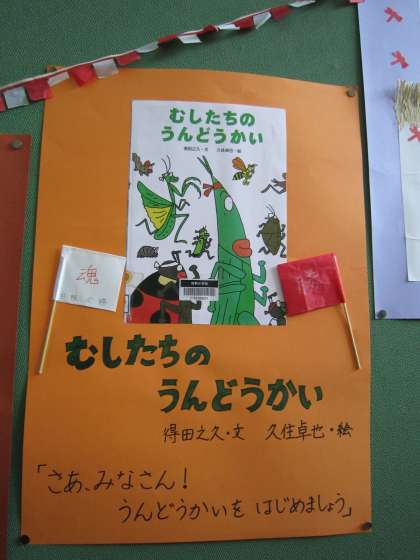 むしたちの
うんどうかい
得田之久・文　久住卓也・絵
魂
むしたちの
うんどうかい
得田之久・文　久住卓也・絵
「さあ、みなさん！
うんどうかいを はじめましょう」